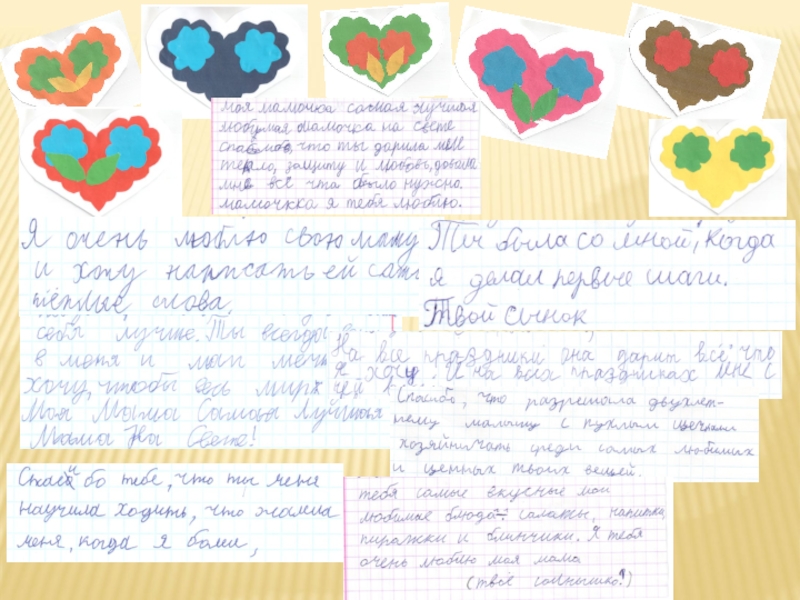 моя мамочка самая лучшая
любимая мамочка на свете
спасибо, что ты дарила мне
тепло, защиту и любовь, давала
мне всё что было нужно.
мамочкка я тебя люблю.
Я очень люблю свою маму
и хочу написать ей
тёплые слова.
Ты была со мной, когда
я делал первые шаги.
Твой сынок
себя лучше. Ты всегда
в меня и мои
хочу, чтобы весь мир
Моя Мама Самая Лучшая
Мама На Свете!
На все праздники она дарит всё что
я хочу. И на всех праздниках мне с
ней
Спасибо, что разрешала двухлет-
нему малышу с пухлыми щечками
хозяйничать среди самых любимых
и ценных твоих вещей.
Спасибо тебе, что ты меня
научила ходить, что жалела
меня, когда я болел,
тебя самые вкусные мои
любимые блюда: салаты, напитки,
пиражки и блинчики. Я тебя
очень люблю моя мама
(твоё солнышко!)